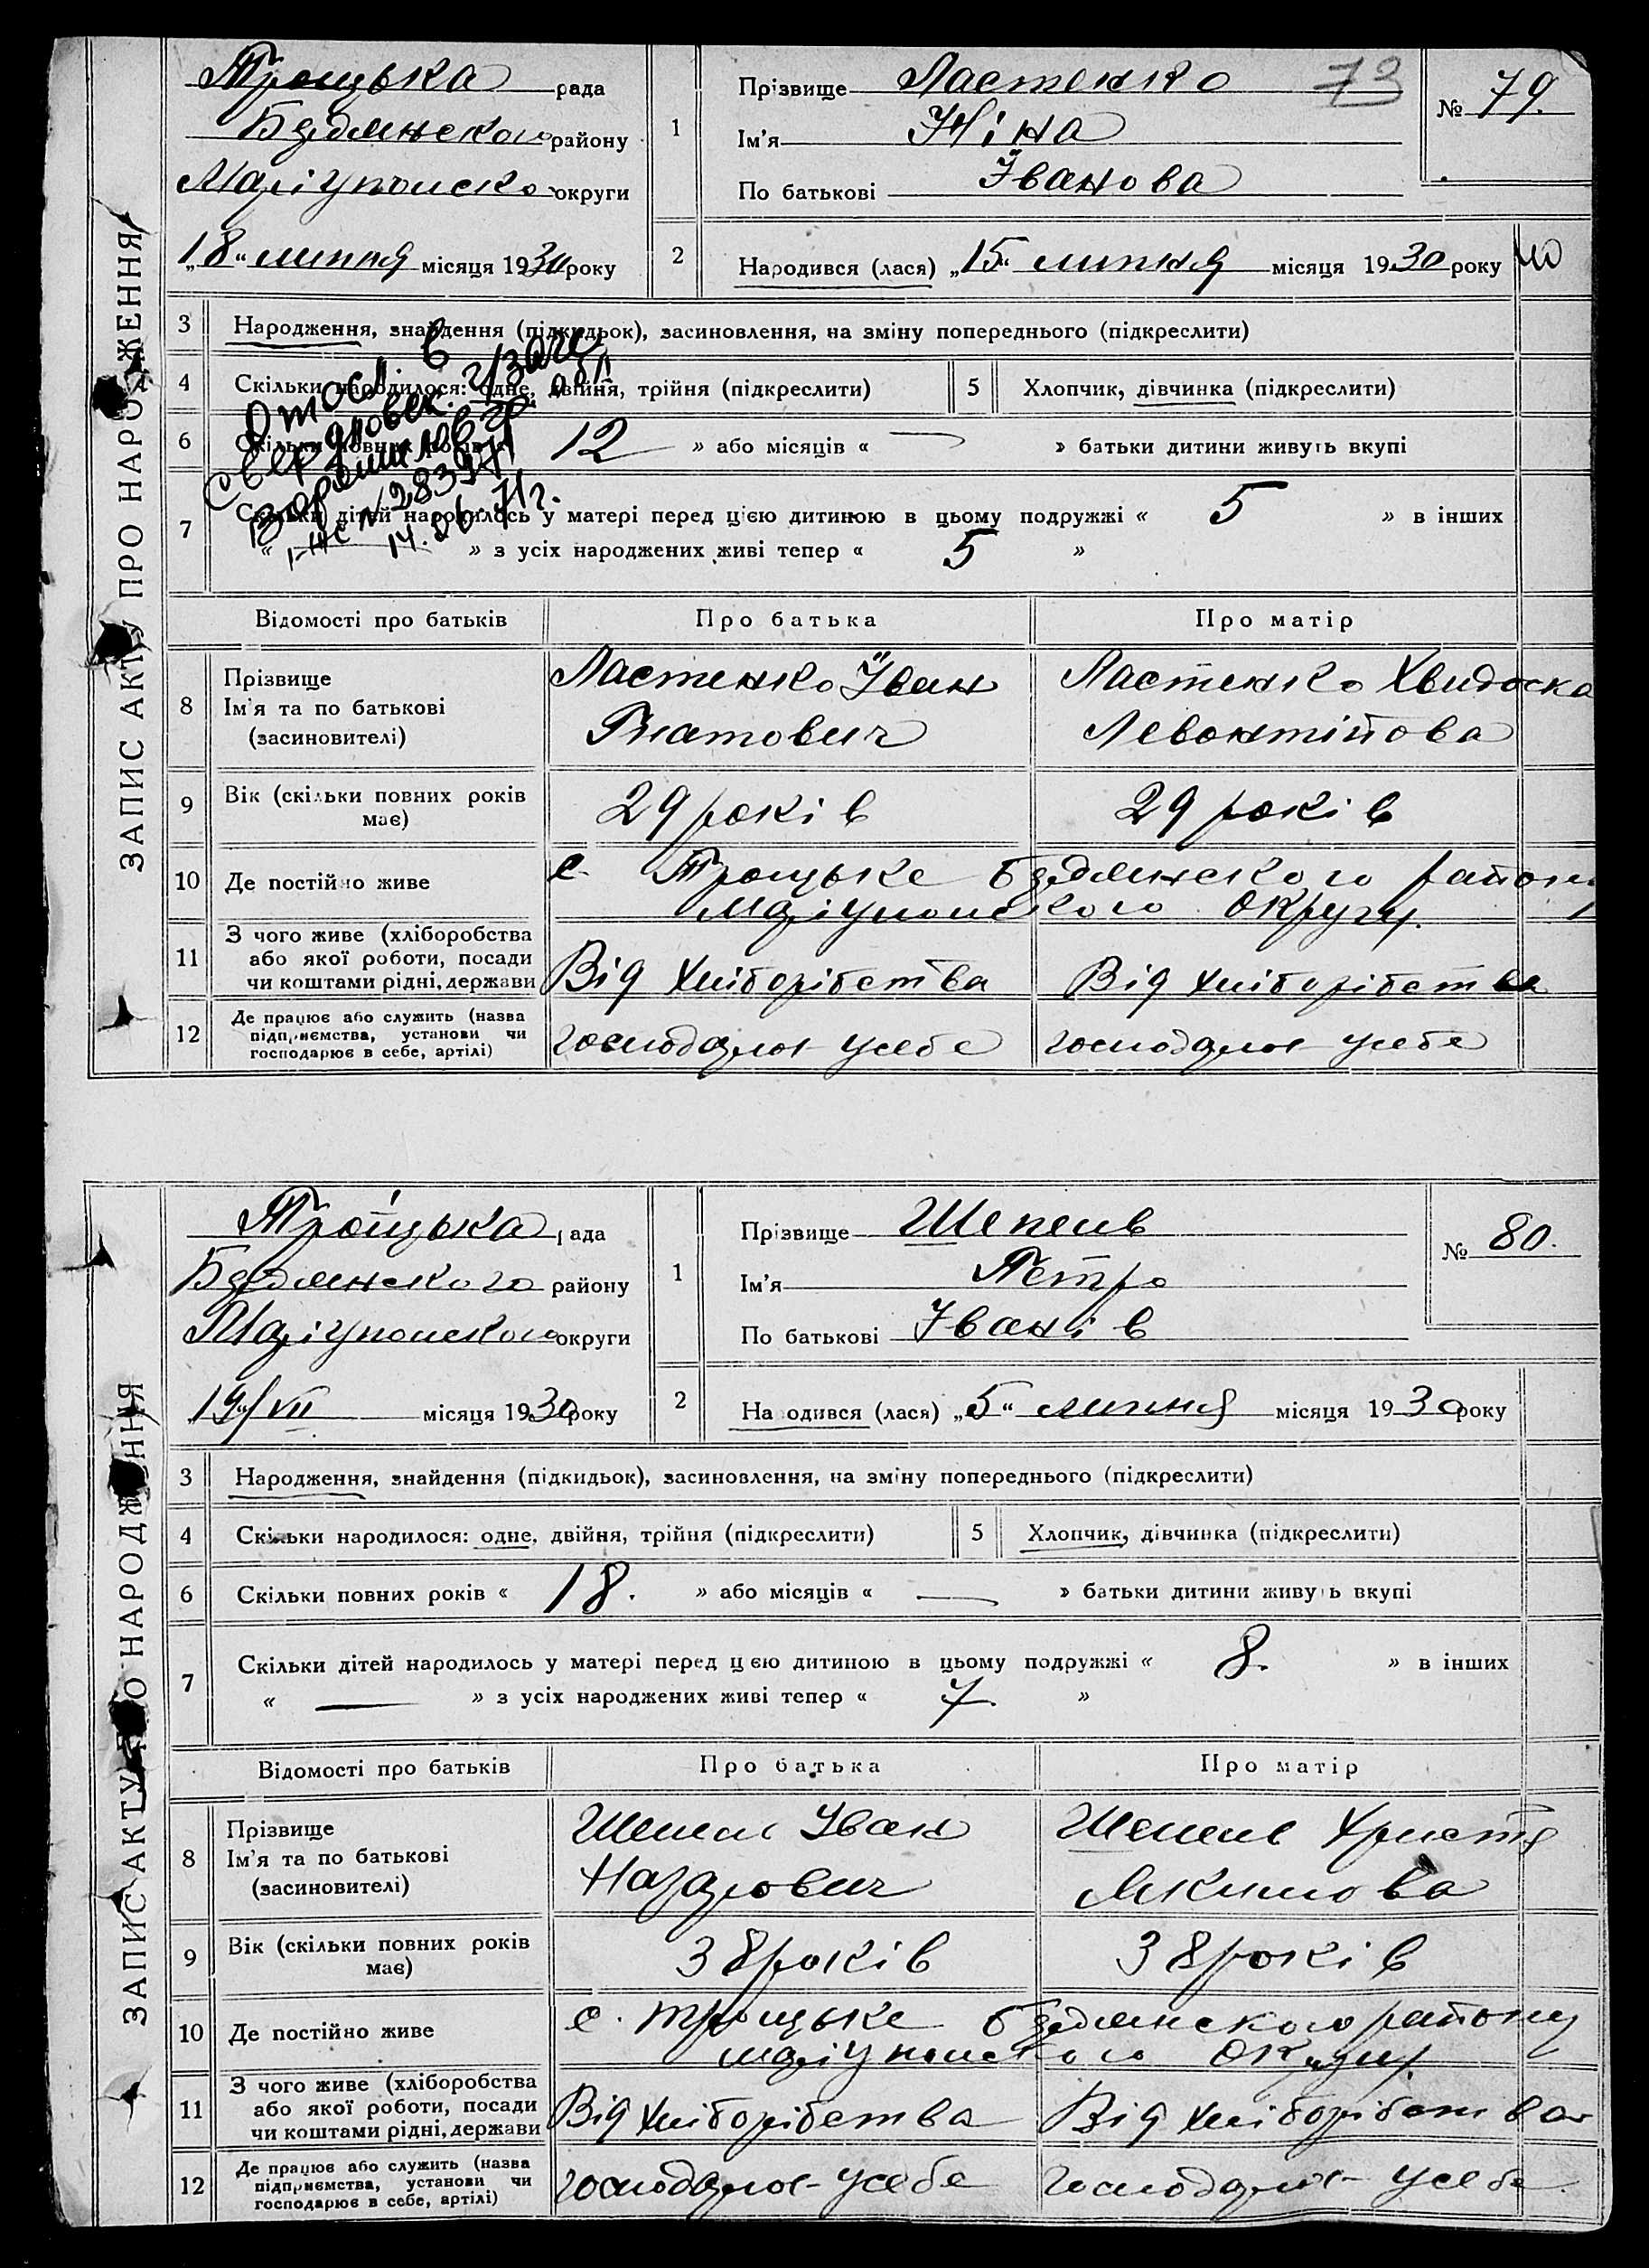 ЗАПИС АКТУ ПРО НАРОДЖЕННЯ
Троцька рада
Бердянского району
Маріупольско округи
„18“ липня місяця 1930 року
1
Прізвище Ластенко
73
Ім'я Ніна
По батькові Їванова
№ 79.
2
Народився (лася) „15“ липня місяця 1930 року
3 Народження, знайдення (підкидьок), засиновлення, на зміну попереднього (підкреслити)
4 Скільки народилося: одне, двійня, трійня (підкреслити) 5 Хлопчик, дівчинка (підкреслити)
6 Скільки повних років « 12 » або місяців « — » батьки дитини живуть вкупі
7 Скільки дітей народилось у матері перед цією дитиною в цьому подружжі « 5 » в інших
« — » з усіх народжених живі тепер « 5 »
Отосл. в
г/загс
Свердловск. обл
14.06.71г.
Відомості про батьків Про батька Про матір
8 Прізвище
Ім'я та по батькові
(засиновителі)
Ластенко Їван
Ластенко Хвидоска
Левонтійова
9 Вік (скільки повних років
має)
29 років 29 років
10 Де постійно живе
с. Троцьке Бердянского району
Маріупольского округу.
11 З чого живе (хліборобства
або якої роботи, посади
чи коштами рідні, держави
Від хліборібства Від хліборібства
12 Де працює або служить (назва
підприємства, установи чи
господарює в себе, артілі)
господарює усебе господарює усебе
ЗАПИС АКТУ ПРО НАРОДЖЕННЯ
Троїцька рада
Бердянского району
Маріупольского округи
„19“/VII місяця 1930 року
1
Прізвище Шепель
Ім'я Петро
По батькові Іванів
№ 80.
2
Народився (лася) „5“ липня місяця 1930 року
3 Народження, знайдення (підкидьок), засиновлення, на зміну попереднього (підкреслити)
4 Скільки народилося: одне, двійня, трійня (підкреслити) 5 Хлопчик, дівчинка (підкреслити)
6 Скільки повних років « 18. » або місяців « — » батьки дитини живуть вкупі
7 Скільки дітей народилось у матері перед цією дитиною в цьому подружжі « 8. » в інших
« — » з усіх народжених живі тепер « 7. »
Відомості про батьків Про батька Про матір
8 Прізвище
Ім'я та по батькові
(засиновителі)
Шепель Іван
Назарович
Шепель Христя
Якимова
9 Вік (скільки повних років
має)
38 років 38 років
10 Де постійно живе
с. Троцьке Бердянского району
Маріупольского округу.
11 З чого живе (хліборобства
або якої роботи, посади
чи коштами рідні, держави
Від хліборібства Від хліборібства
12 Де працює або служить (назва
підприємства, установи чи
господарює в себе, артілі)
господарює усебе господарює усебе